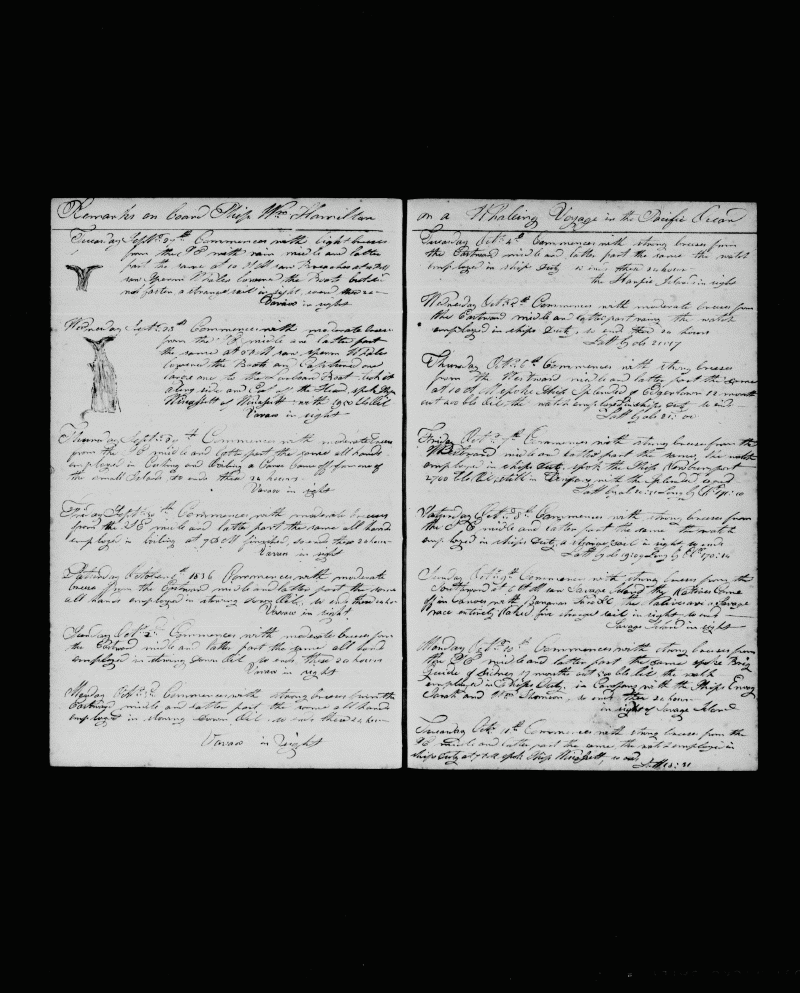 Remarks on board Ship Wm Hamilton
Tuesday Sept 27th Commences with light breezes
from the SE with rain midle and latter
part the same at 10 AM saw Breaches at
saw Sperm Whales Lowered the Boats but did
not fasten a strange sail in sight
Vavao in sight
Wednesday Sept 28th Commences with moderate breeses
from the SE midle and latter part
the same at AM saw sperm Whales
Lowered the Boats and Captured one
large one to the Larboard Boat took it
along side and Cut of the Head, spoke Ship
with 1950 bbls Oil
Vavao in sight
Thursday Sept Commences with moderate breeses
from the SE midle and latter part the same all hands
employed in Cutting and boiling a Canoe Came off from one of
the small Islands so ends these 24 hours
Vavao in sight
Friday Sept 30th Commences with moderate breeses
from the SE midle and latter part the same all hands
employed in boiling at 7 PM finished, so ends these 24 hours
Vavao in sight
Saturday October 1st 1836 Commences with moderate
breeses from the Eastward midle and latter part the same
all hands employed in stowing down Oil, so ends these 24 hours
Vavao in sight
Sunday Oct 2d Commences with moderate breeses from
the Eastward midle and latter part the same all hand
employed in stowing down Oil so ends these 24 hours
Vavao in sight
Monday Oct 3d Commences with strong breeses from the
Eastward midle and latter part the same all hands
employed in stowing down Oil, so ends these 24 hours
Vavao in Sight
on a Whaleing Voyage in the Pacific Ocean
Tuesday Oct 4th Commences with strong breeses from
the Eastward midle and latter part the same the watch
employed in ships Duty so ends these 24 hours
the Harpie Islands in sight
Wednesday Oct 5th Commences with moderate breeses from
the Eastward midle and latter part rainy the watch
employed in ships Duty, so ends these 24 hours
Latt by ob 21:17
Thursday Oct 6th Commences with strong breeses
from the Westward midle and latter part the same
at 10 AM spoke Ship Splendid of Edgartown 12 month
out 400 bbls Oil the watch employed in ships duty so ends
Latt by ob 21:00
Friday Oct 7th Commences with strong breeses from the
Westward midle and latter part the same, the watch
employed in ships duty, spoke the Ship Newburyport
2700 bbls Oil, still in Company with the Splendid
Latt by ob Long by
Saturday Oct 8th Commences with strong breeses from
the SE midle and latter part the same the watch
employed in ships Duty a strange sail in sight so ends
Latt by ob 19:29 Long by 170:16
Sunday Oct 9th Commences with strong breeses from the
Southward at 6 AM saw Savage Island the Natives Came
off in Canoes with Bananas the Natives are a Savage
race entirely Naked five strange sail in sight so ends
Savage Island in sight
Monday Oct 10th Commences with strong breeses from
the SE midle and latter part the same spoke Brig
of Sidney 17 months out bbls Oil the watch
employed in Ships Duty, in Company with the Ships Envoy
Sarah and Wm Thomson, so ends these 24 hours
in sight of Savage Island
Tuesday Oct 11th Commences with strong breeses from the
SE midle and latter part the same, the watch employed in
ships Duty at spoke Ship so ends
Latt